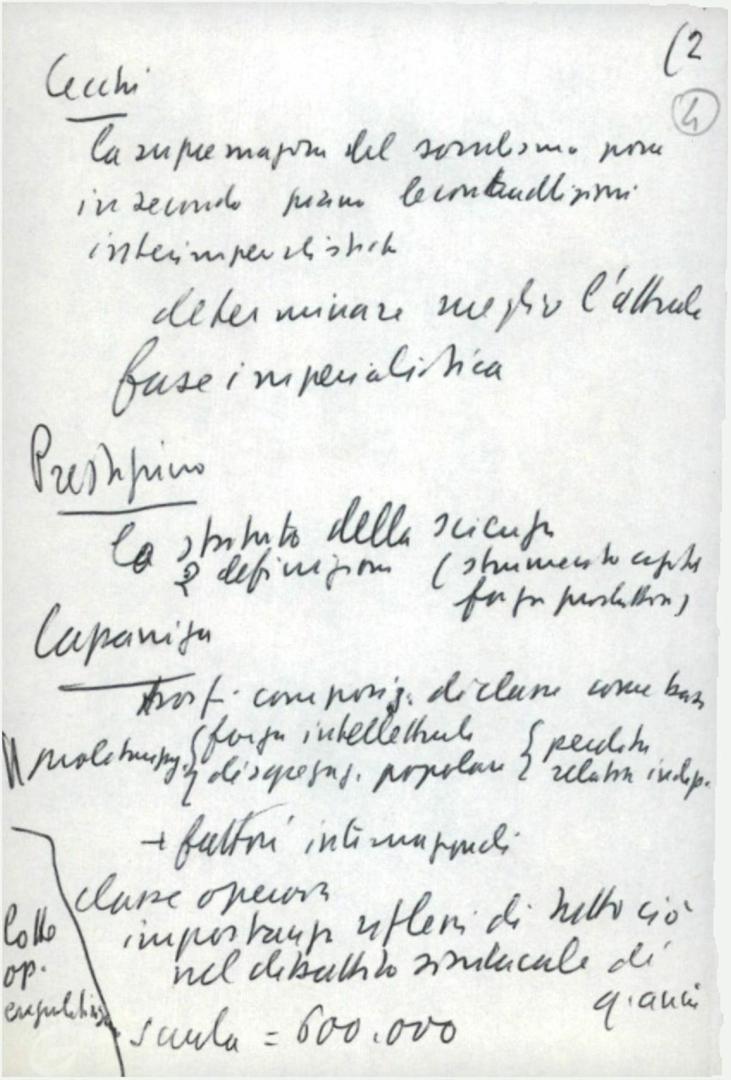 (2
4
Cecchi
la supremazia del socialismo pone
in secondo piano le contraddizioni
interimperialistiche
determinare meglio l'attuale
fase imperialistica
Prestipino
lo statuto della scienza
2 definizioni (strumento capit.
forza produttiva)
Capaniga
trasf. composiz. di classe come base
proletarizz. { forza intellettuale { perdita
{ disgregaz. popolare { relativa indip.
+ fattori internazionali
classe operaia
importanza riflessi di tutto ciò
nel dibattito sindacale di
q. anni
lotte
op.
scuola = 600.000